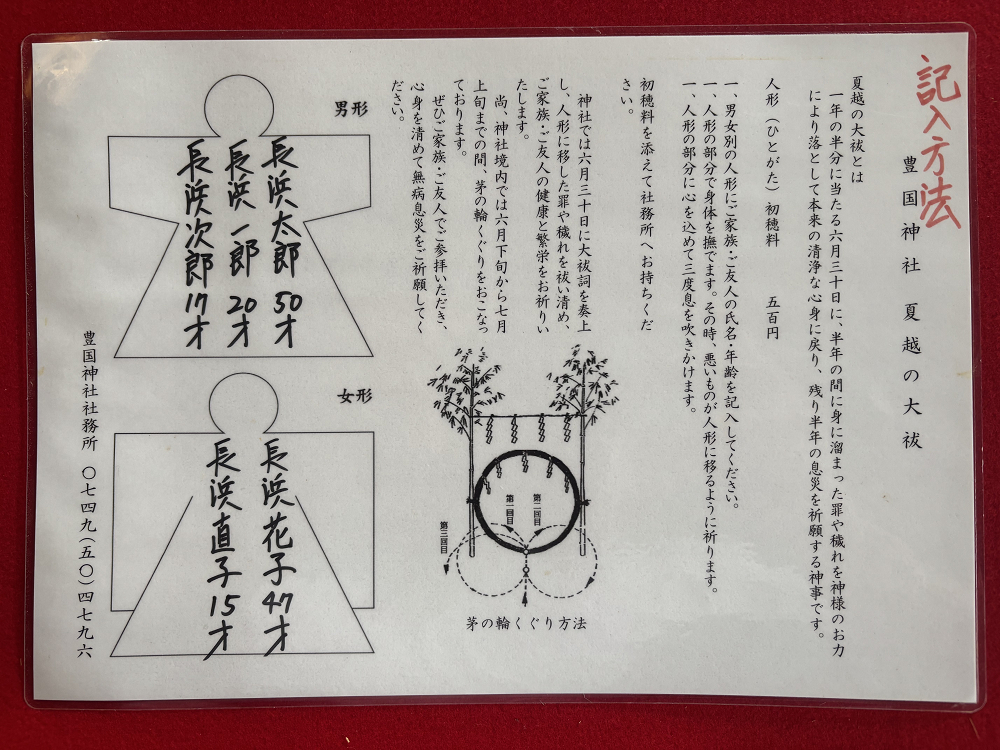 記入方法
豊国神社 夏越の大祓
夏越の大祓とは
一年の半分に当たる六月三十日に、半年の間に身に溜まった罪や穢れを神様のお力
により落として本来の清浄な心身に戻り、残り半年の息災を祈願する神事です。
人形（ひとがた）初穂料 五百円
一、男女別の人形にご家族・ご友人の氏名・年齢を記入してください。
一、人形の部分で身体を撫でます。その時、悪いものが人形に移るように祈ります。
一、人形の部分に心を込めて三度息を吹きかけます。
初穂料を添えて社務所へお持ちくだ
さい。
神社では六月三十日に大祓詞を奏上
し、人形に移した罪や穢れを祓い清め、
ご家族・ご友人の健康と繁栄をお祈りい
たします。
尚、神社境内では六月下旬から七月
上旬までの間、茅の輪くぐりをおこなっ
ております。
ぜひご家族・ご友人でご参拝いただき、
心身を清めて無病息災をご祈願してく
ださい。
第二回目
第一回目
第三回目
茅の輪くぐり方法
男形
長浜太郎 50才
長浜一郎 20才
長浜次郎 17才
女形
長浜花子 47才
長浜直子 15才
豊国神社社務所 〇七四九（五〇）四七九六